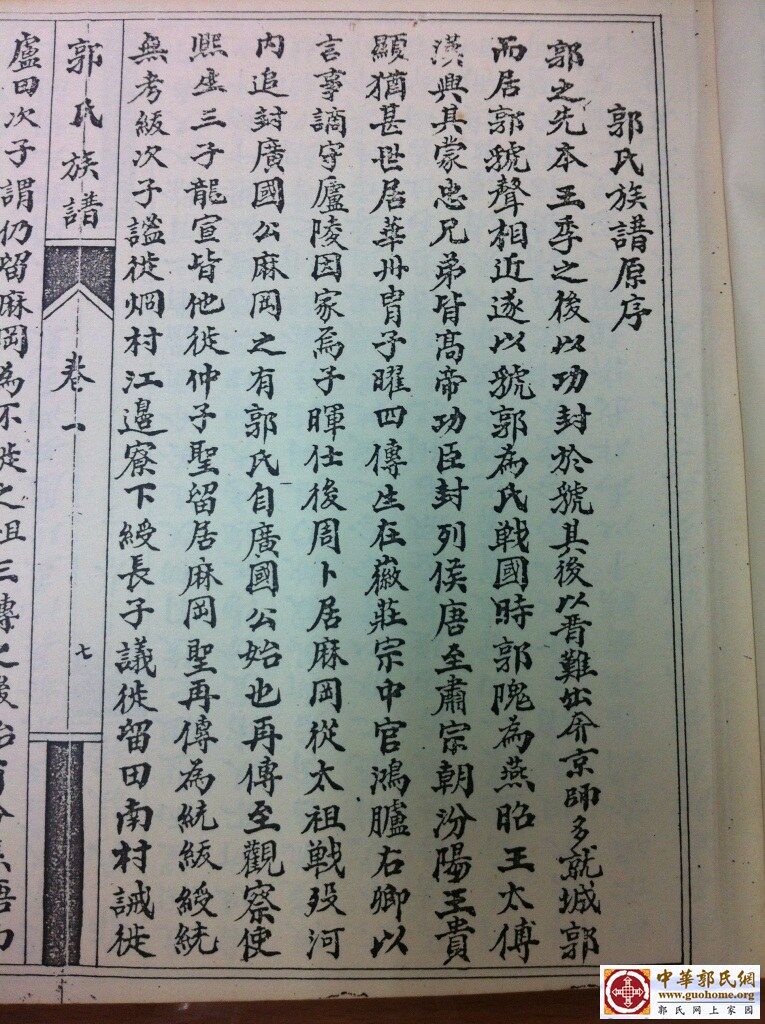 郭氏族譜原序
郭之先本王季之後以功封於虢其後以晋難出奔京師多就城郭
而居郭虢聲相近遂以虢郭為氏戰國時郭隗為燕昭王太傅
漢興其蒙忠兄弟皆髙帝功臣封列侯唐至肅宗朝汾陽王貴
顯猶甚世居華州胄子曜四傳生在徽莊宗中官鴻臚右卿以
言事謫守廬陵因家焉子暉仕後周卜居麻岡從太祖戰殁河
内追封廣國公麻岡之有郭氏自廣國公始也再傳至觀察使
熙生三子龍宣皆他徙仲子聖留居麻岡聖再傳為統級綬統
無考級次子謐徙烱村江邊寮下綬長子議徙留田南村誡徙
郭氏族譜 卷一 七
盧田次子謂仍留麻岡為不徙之祖三傳之後始有分
中華郭氏網
www.guohome.org
郭氏网上家园